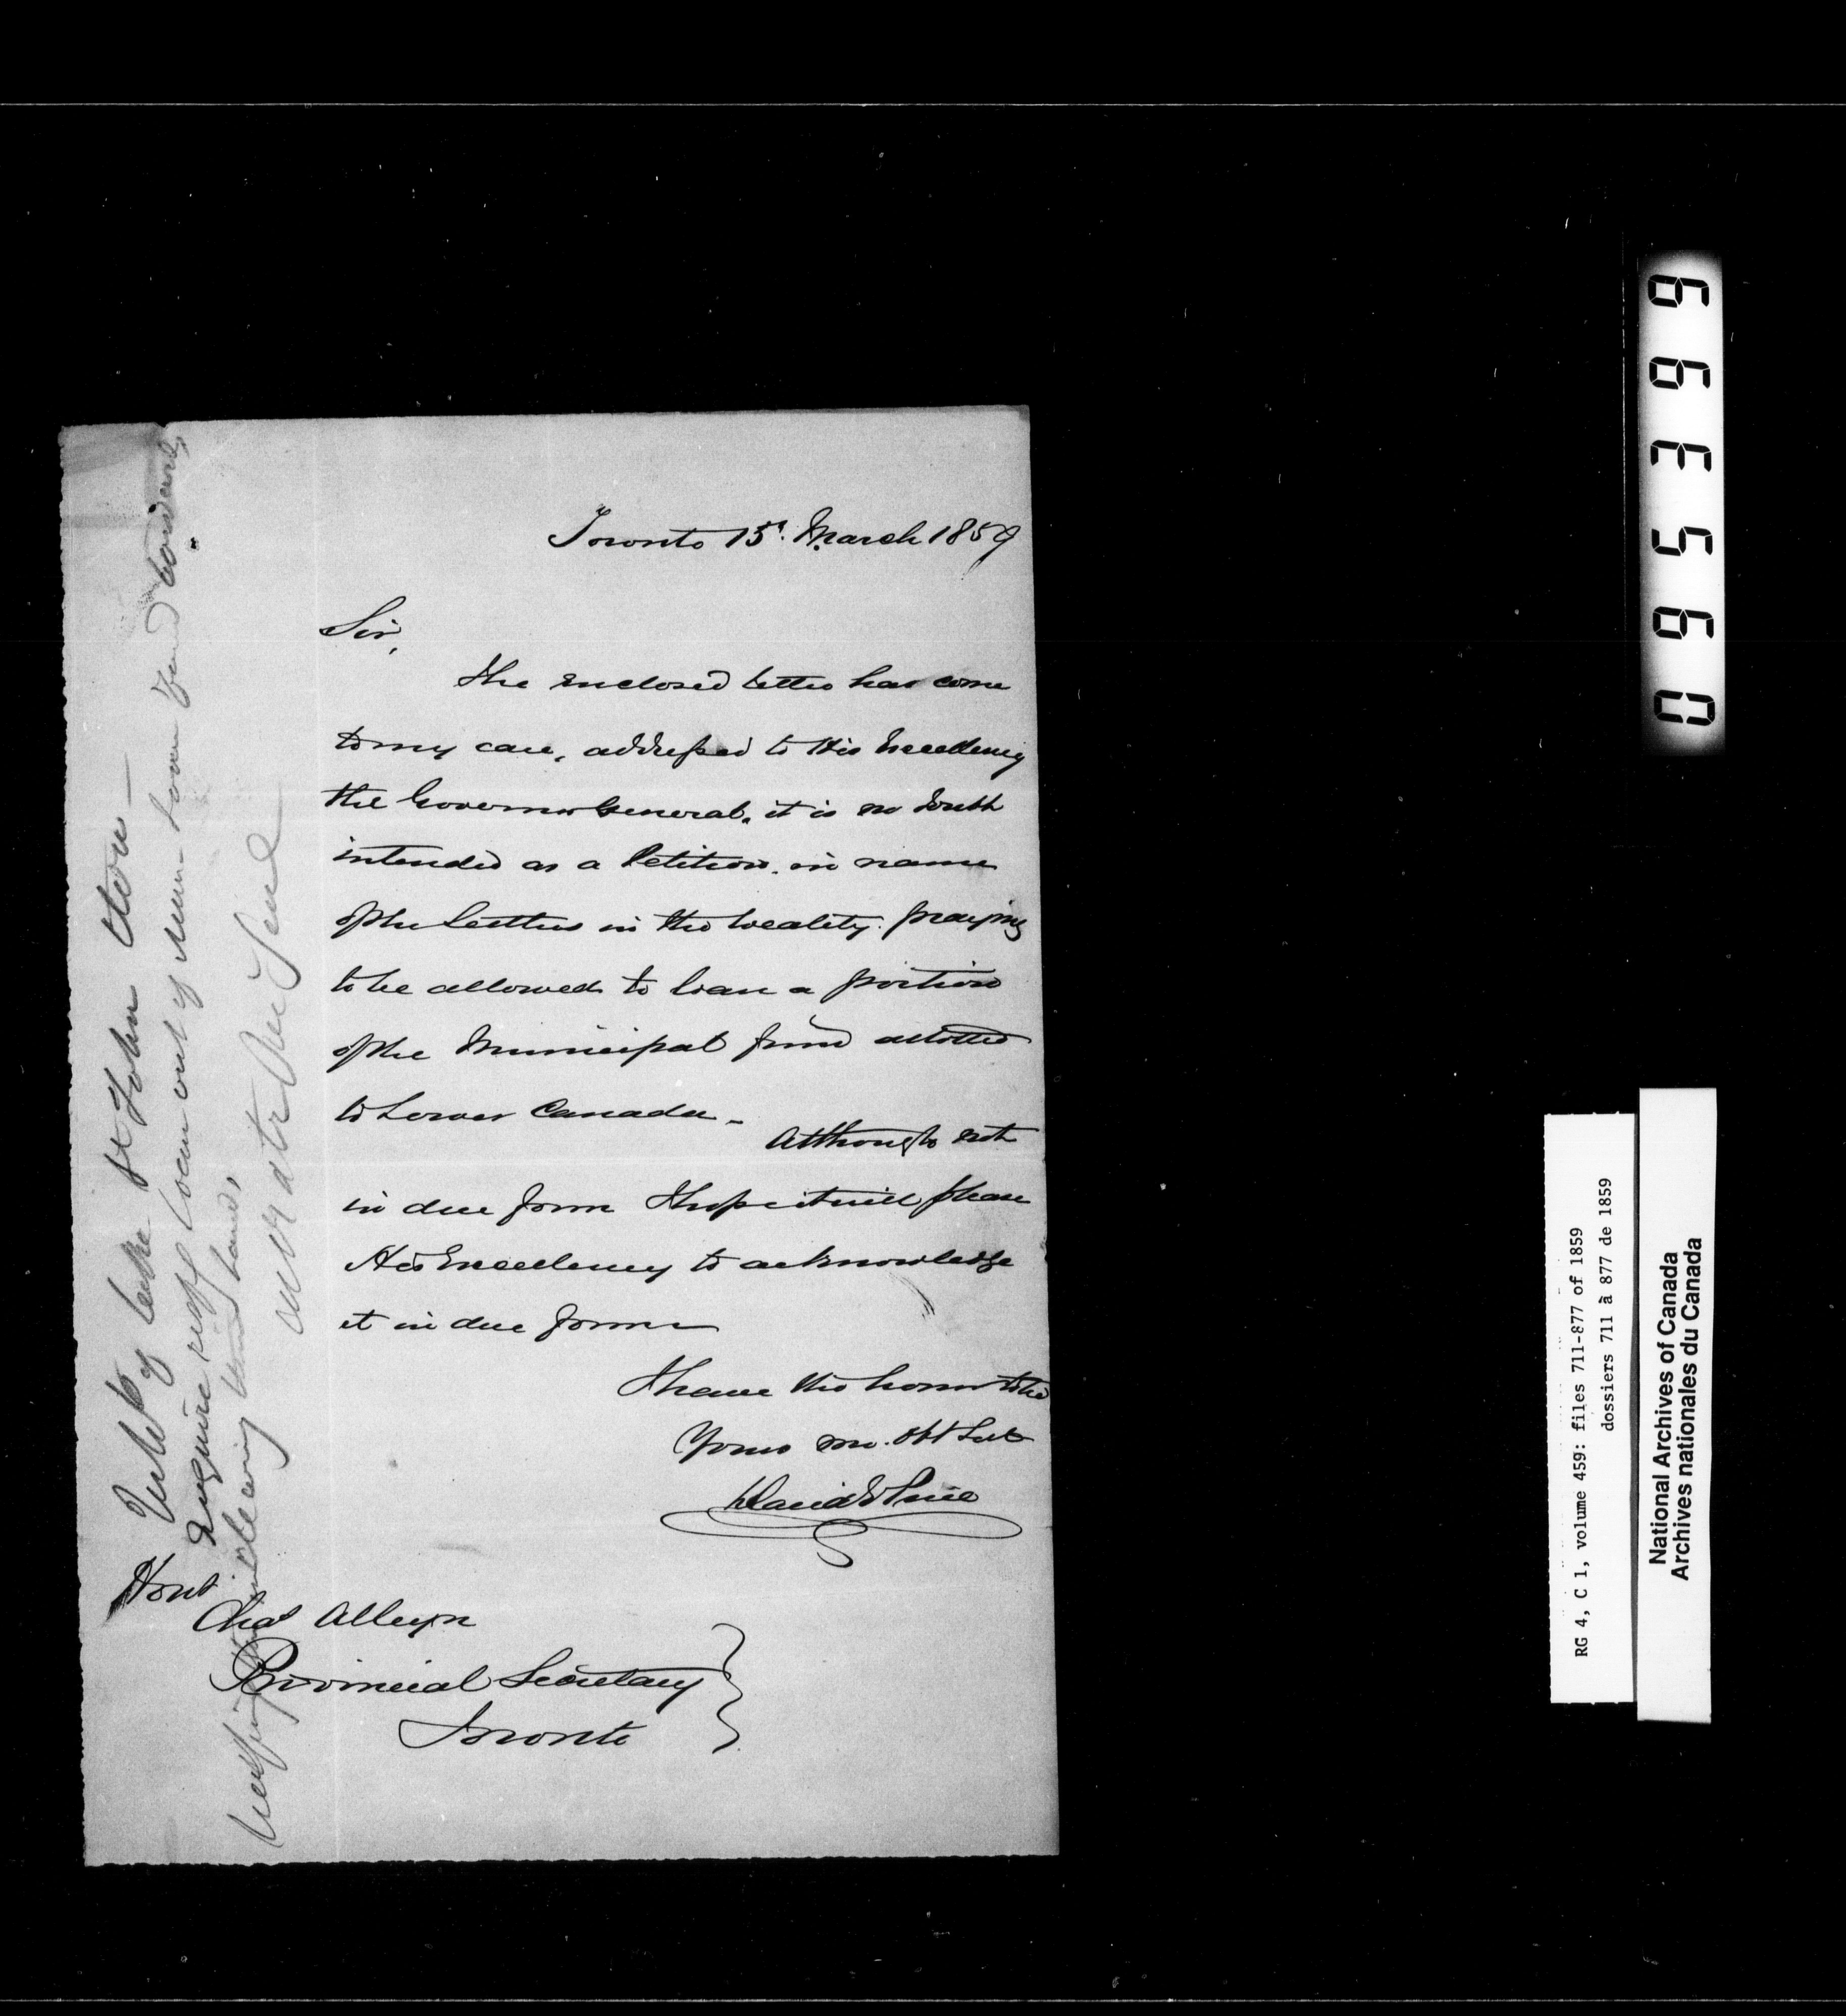 Toronto 15t. March 1859
Sir,
The enclosed letter has come
to my care, addressed to His Excellency
the Governor General, it is no doubt
intended as a Petition, in name
of the Settlers in the locality. praying
to be allowed to loan a portion
of the Municipal fund allotted
to Lower Canada -
Although not
in due form I hope it will please
His Excellency to acknowledge
it in due form
I have the honor to be
Yours mo. Obt Sert
David E Price
Honl
Chas Alleyn
Provincial Secretary
Toronto
of Lake St John
Enquire resp loan out of Mun Loan Fund
clearing lands,
RG 4, C 1, volume 459: files 711-877 of 1859
dossiers 711 à 877 de 1859
National Archives of Canada
Archives nationales du Canada
065399